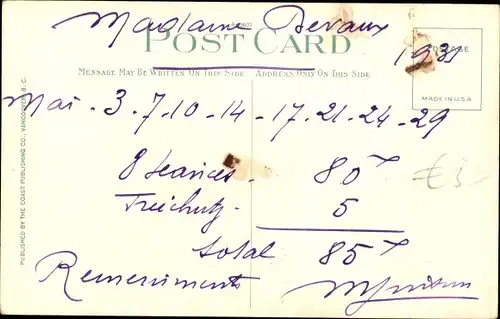 Madame Devaux
POST CARD
1931
POSTAGE
MESSAGE MAY BE WRITTEN ON THIS SIDE ADDRESS ONLY ON THIS SIDE
MADE IN U.S.A.
Mai. 3.7.10.14.17.21.24.29
8 Seances. 80
5
total 85
PUBLISHED BY THE COAST PUBLISHING CO., VANCOUVER, B. C.